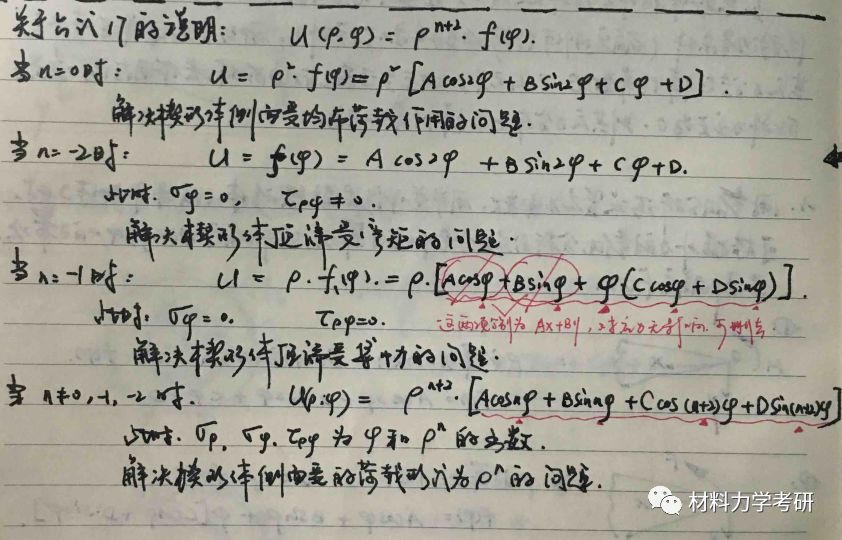 关于公式17的说明: U(ρ.φ) = ρ^{n+2}. f(φ).
当n=0时: U = ρ². f(φ) = ρ² [A cos2φ + B sin2φ + Cφ + D].
解决楔形体侧面受均布荷载作用的问题.
当n=-2时: U = f(φ) = A cos2φ + B sin2φ + Cφ+D.
此时. σφ=0, τρφ≠0.
解决楔形体顶端受弯矩的问题.
当n=-1时: U = ρ. f₁(φ). = ρ.[Acosφ+Bsinφ + φ(Ccosφ + Dsinφ)].
此时. σφ=0. τρφ=0. 这两项分别为 Ax+By, 对应力无影响. 可删去
解决楔形体顶端受集中力的问题.
当 n≠0,-1,-2 时. U(ρ.φ) = ρ^{n+2}.[Acosnφ + Bsinnφ + Ccos(n+2)φ + Dsin(n+2)φ]
此时. σρ, σφ, τρφ 为 φ和 ρⁿ 的函数.
解决楔形体侧面受的荷载形式为ρⁿ的问题.
材料力学考研